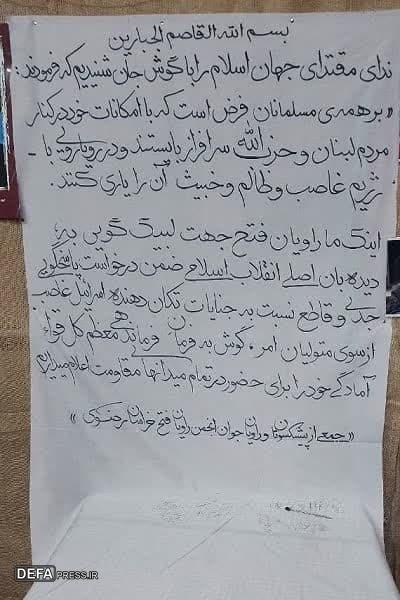 بسم الله القاصم الجبارین
ندای مقتدای جهان اسلام را با گوش جان شنیدیم که فرمودند:
« بر همه‌ی مسلمانان فرض است که با امکانات خود در کنار
مردم لبنان و حزب الله سرافراز بایستند و در رویارویی با
رژیم غاصب و ظالم و خبیث آن را یاری کنند.
اینک ما راویان فتح جهت لبیک گویی به
دیده‌بان اصلی انقلاب اسلامی ضمن درخواست پاسخگویی
جدی و قاطع نسبت به جنایات تکان دهنده اسرائیل غاصب
از سوی متولیان امر، گوش به فرمان فرمانده معظم کل قوا،
آمادگی خود را برای حضور در تمام میدانهای مقاومت اعلام میداریم
« جمعی از پیشکسوتان و راویان جوان انجمن راویان فتح خراسان رضوی »
DEFAPRESS.IR